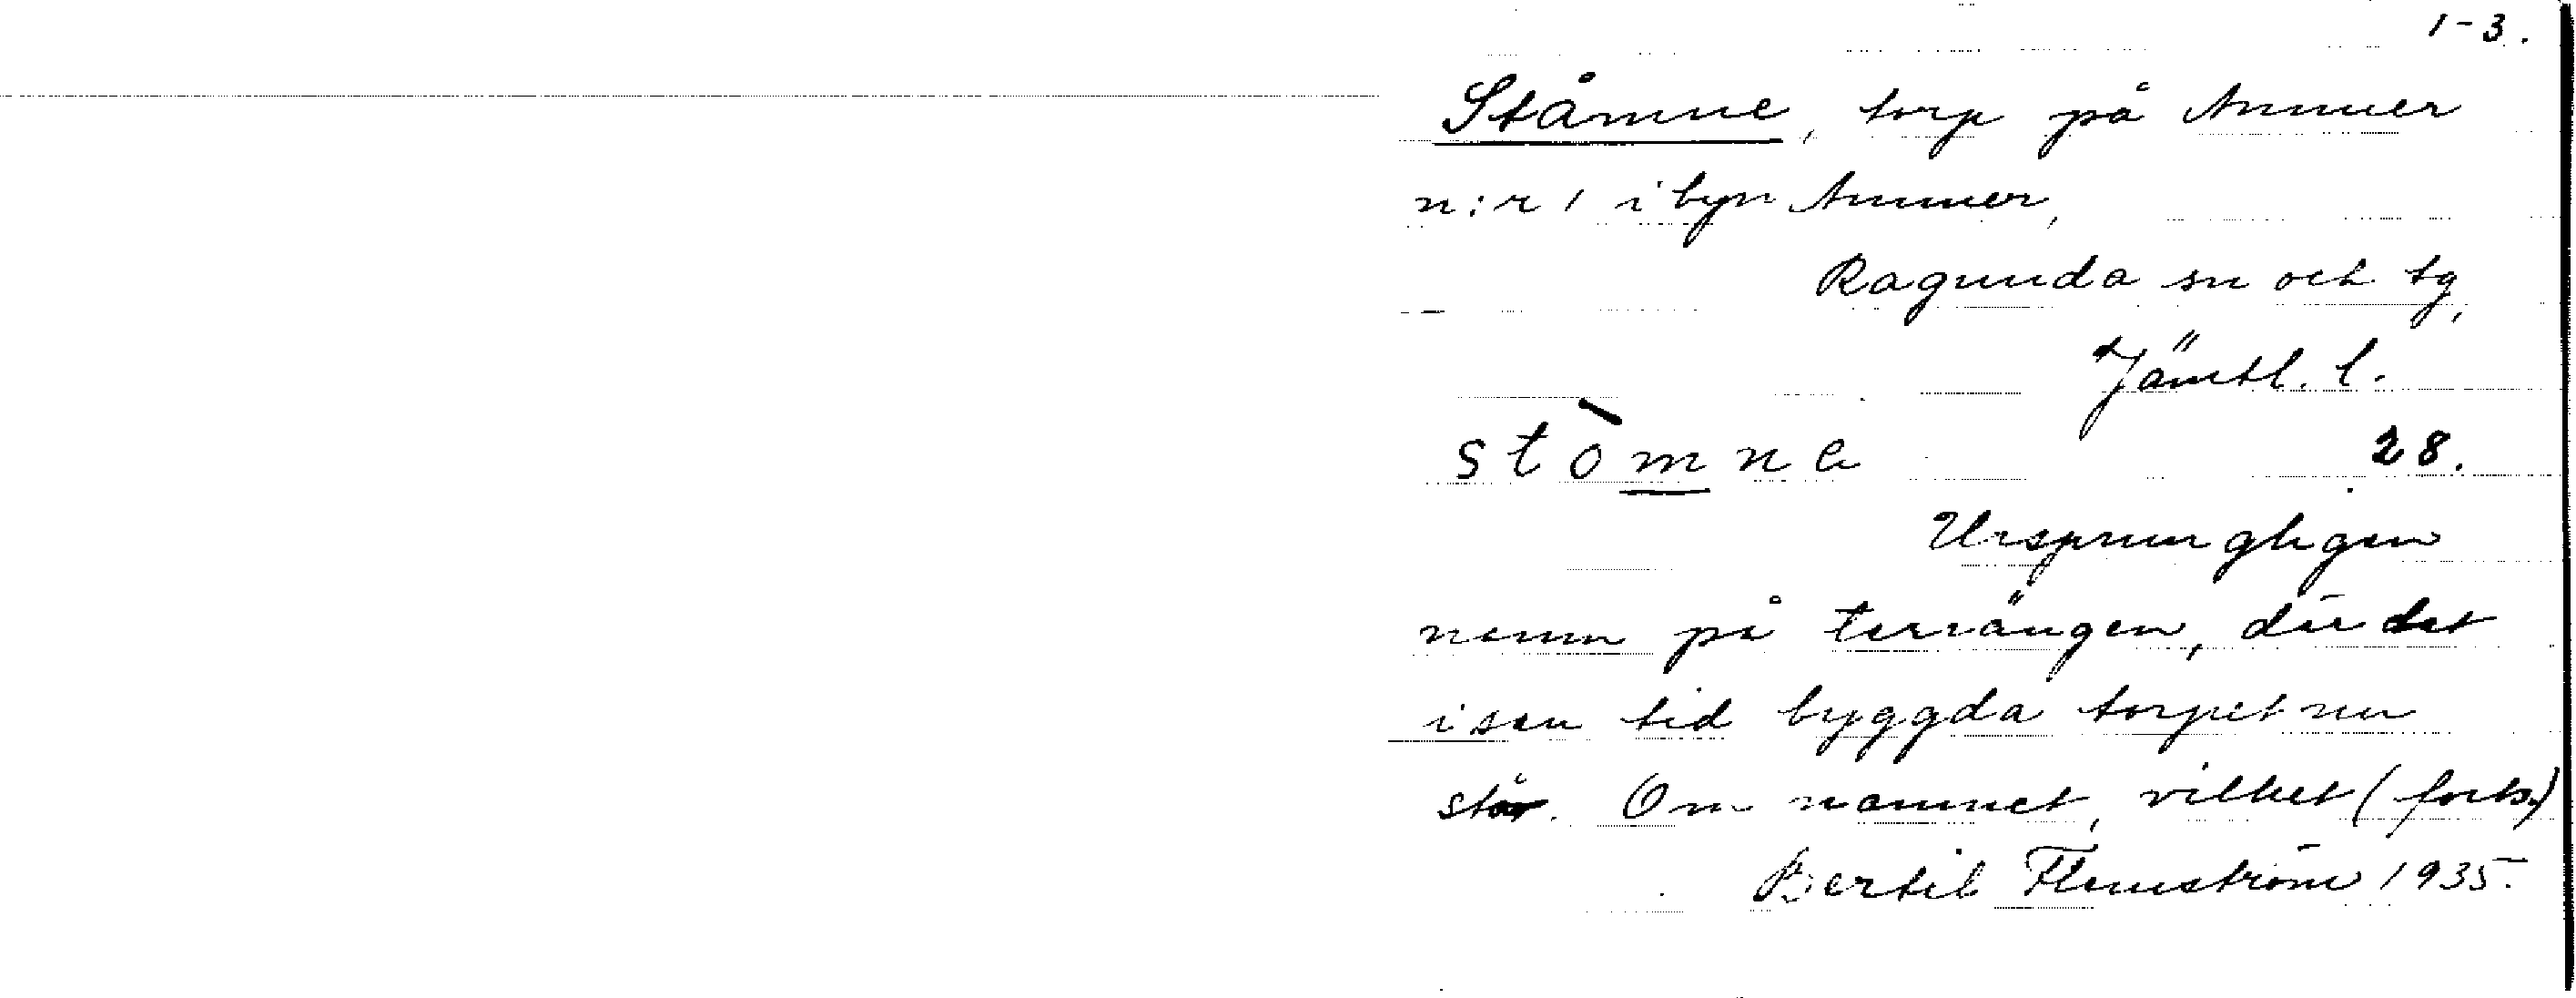 1-3.
Ståmne, torp på Ammer
n:r 1 i byn Ammer,
Ragunda sn och tg,
Jämtl. l.
stòmne 28.
Ursprungligen
namn på terrängen, där det
i sen tid byggda torpet nu
står. Om namnet, vilket (forts.)
Bertil Flemström 1935.